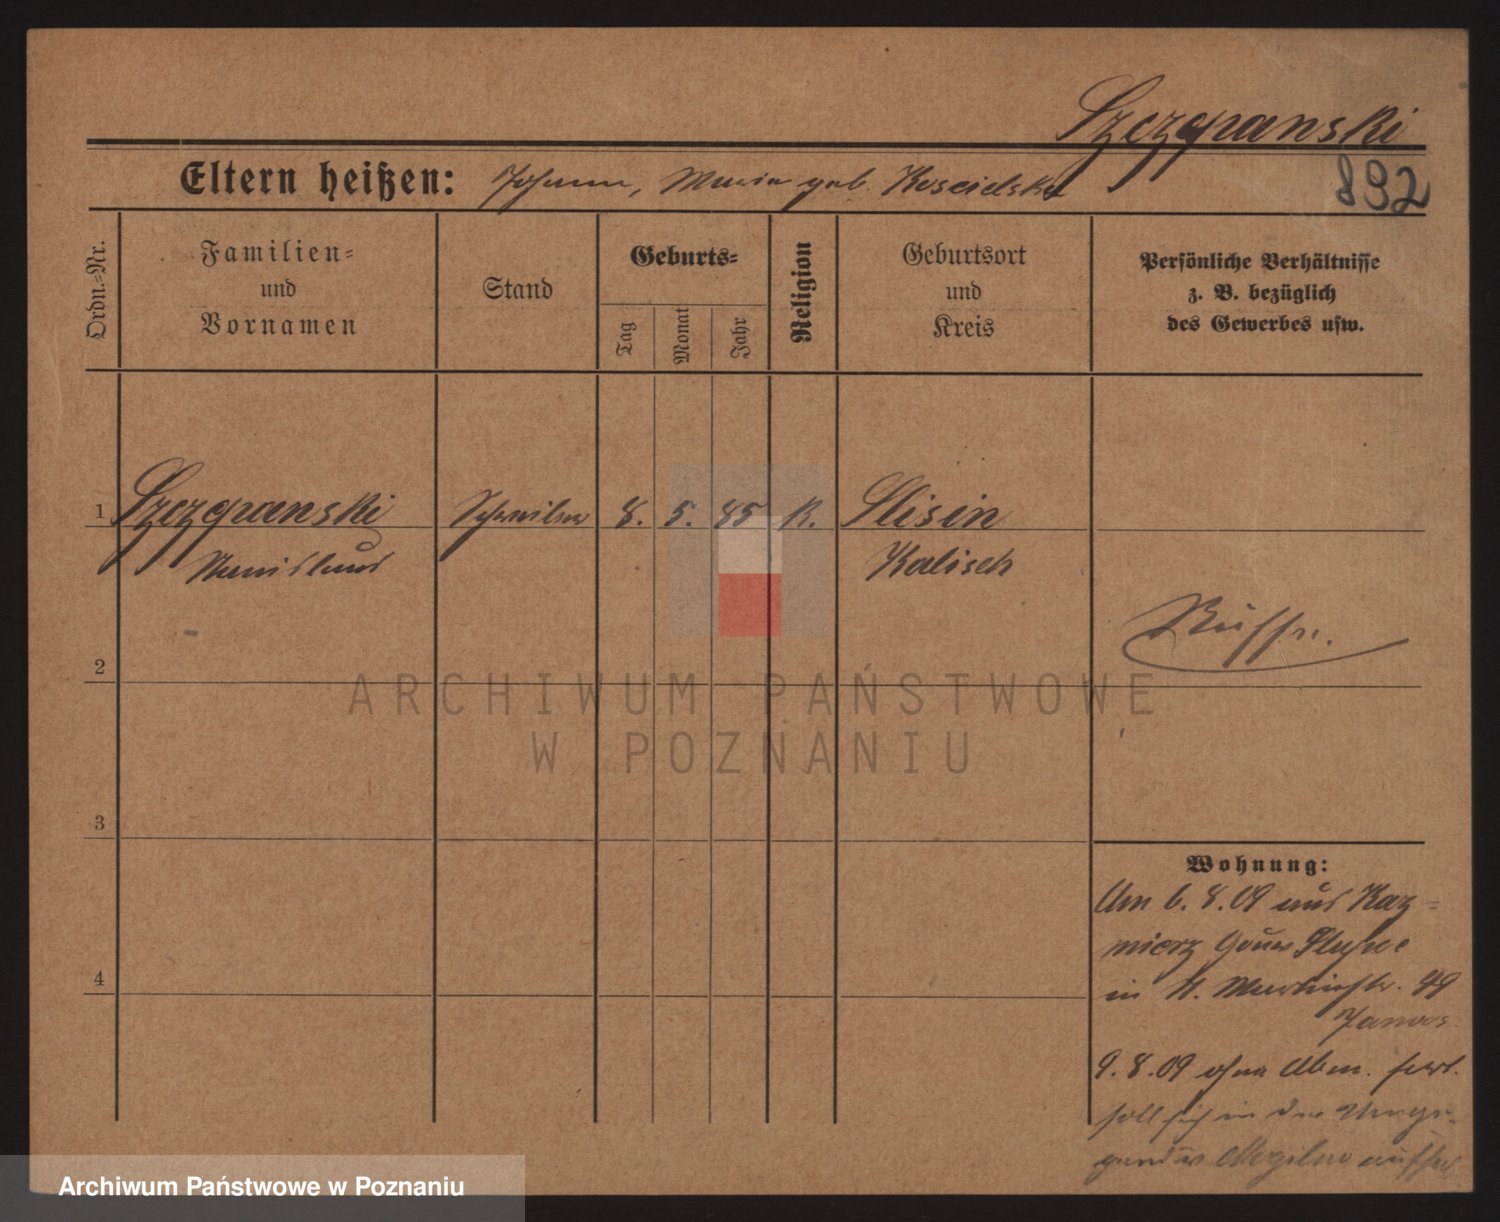 Szczepanski
892
Eltern heißen: Johann, Maria geb. Koscielska
Ordn.-Nr.
Familien-
und
Vornamen
Stand
Geburts-
Tag
Monat
Jahr
Religion
Geburtsort
und
Kreis
Persönliche Verhältnisse
z. B. bezüglich
des Gewerbes usw.
1 Szczepanski 8. 5. 85 K. Slisin
Stanislaus Kalisch
Russe.
2
ARCHIWUM PAŃSTWOWE
W POZNANIU
3
Wohnung:
Am 6. 8. 09 aus Kaz-
mierz Gouv
in St. Martinstr. 49
4
9. 8. 09 ohne Abm.
soll sich in der Umge-
gend v. Mogilno
Archiwum Państwowe w Poznaniu